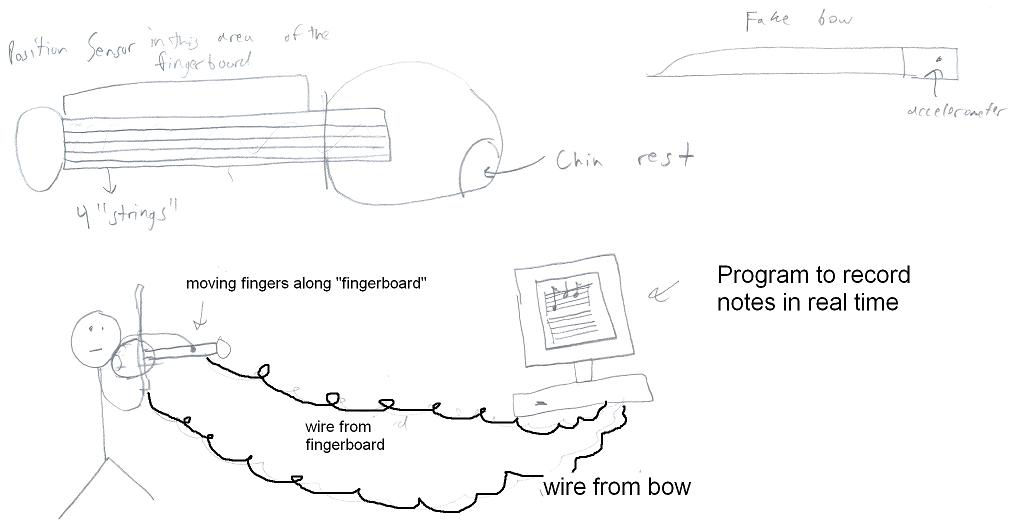 Fake bow
Position Sensor in this area of the
fingerboard
accelerometer
Chin rest
4 "strings"
moving fingers along "fingerboard"
Program to record
notes in real time
wire from
fingerboard
wire from bow